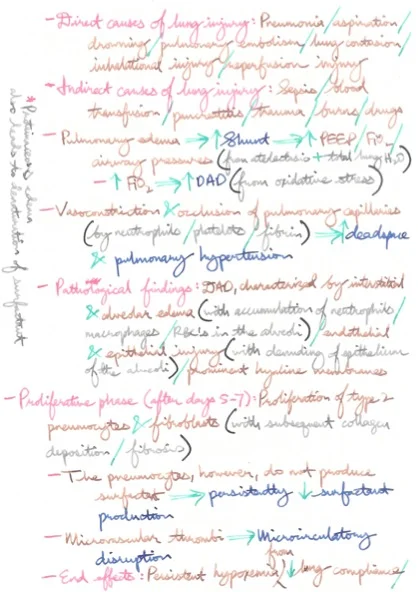 - Direct causes of lung injury: Pneumonia/aspiration/
drowning/pulmonary embolism/lung contusion/
inhalational injury/reperfusion injury
- Indirect causes of lung injury: Sepsis/blood
transfusion/pancreatitis/trauma/burns/drugs
- Pulmonary edema → ↑ Shunt → ↑ PEEP/FiO₂/
airway pressures (from atelectasis + total lung H₂O)
- ↑ FiO₂ → ↑ DAD (from oxidative stress)
- Vasoconstriction & occlusion of pulmonary capillaries
(by neutrophils/platelets/fibrin) → ↑ deadspace
& pulmonary hypertension
- Pathological findings: DAD, characterized by interstitial
& alveolar edema (with accumulation of neutrophils/
macrophages/RBC's in the alveoli)/endothelial
& epithelial injury (with denuding of epithelium
of the alveoli)/prominent hyaline membranes
- Proliferative phase (after days 5-7): Proliferation of type 2
pneumocytes & fibroblasts (with subsequent collagen
deposition/fibrosis)
- The pneumocytes, however, do not produce
surfactant → persistently ↓ surfactant
production
- Microvascular thrombi → Microcirculatory
disruption
- End effects: Persistent hypoxemia/↓ lung compliance/
from
* Proteinaceous edema
also leads to destruction of surfactant